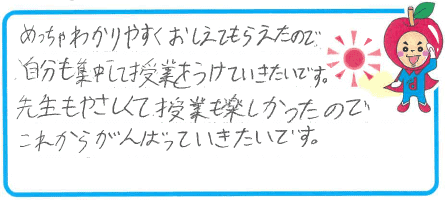 めっちゃわかりやすくおしえてもらえたので
自分も集中して授業をうけていきたいです。
先生もやさしくて授業も楽しかったので
これからがんばっていきたいです。